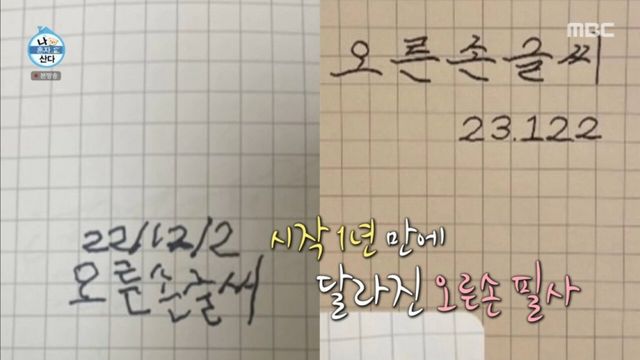 나
혼자
산다
본방송
MBC
22/12/2
오른손글씨
오른손글씨
23.122
시작 1년 만에
달라진 오른손 필사